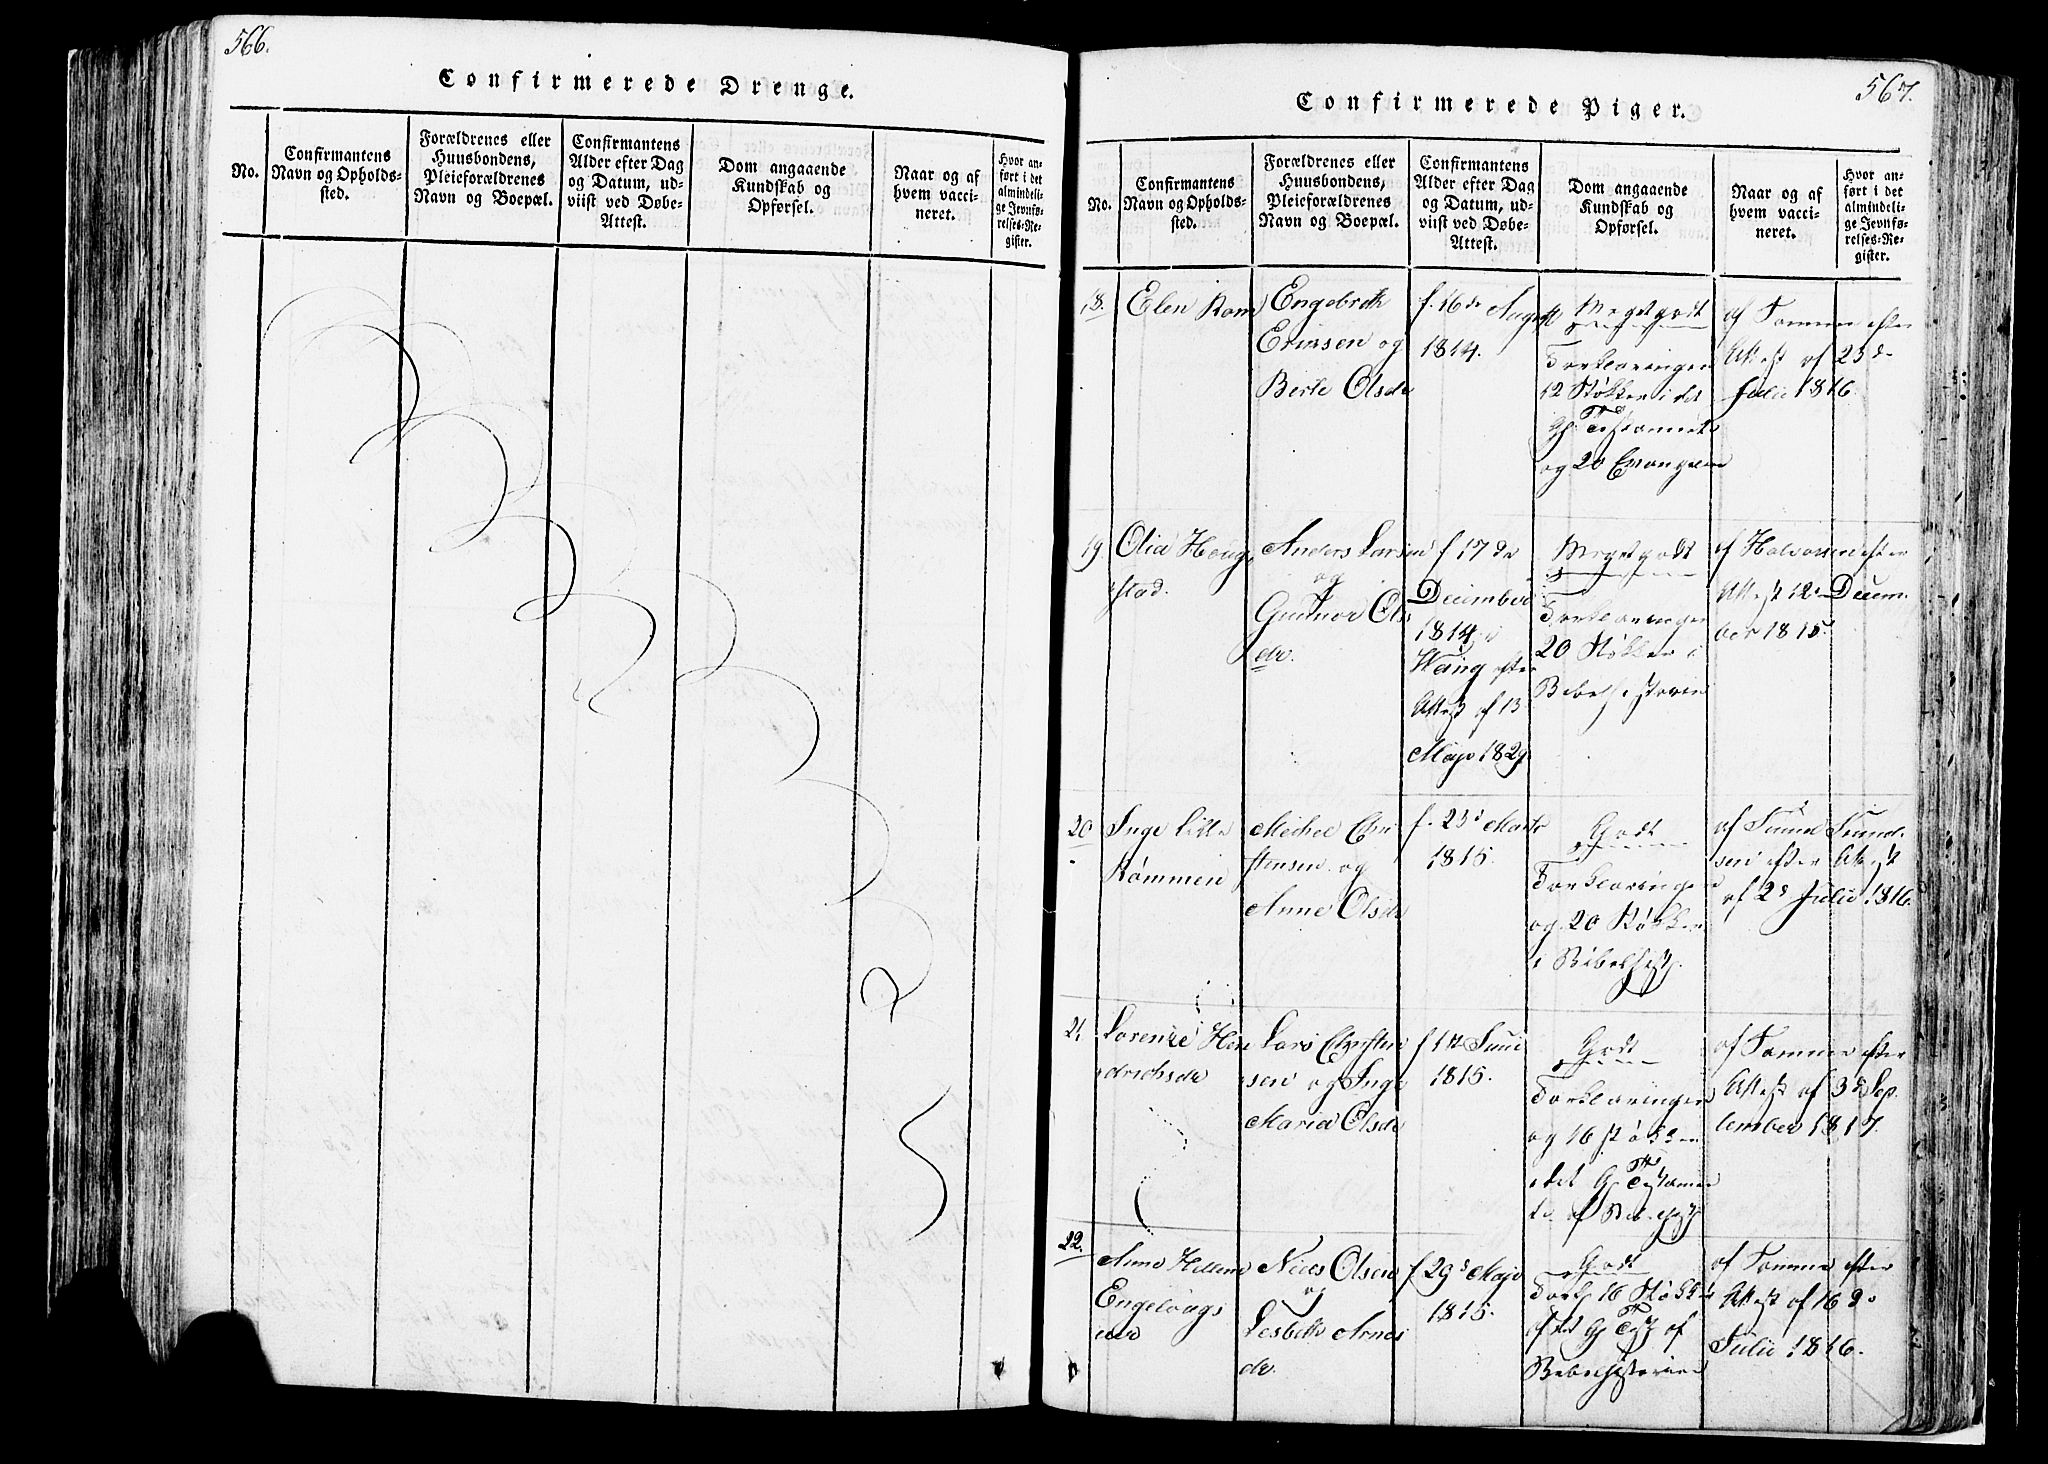 566.
Confirmerede Drenge.
No.
Confirmantens
Navn og Opholds-
sted.
Forældrenes eller
Huusbondens,
Pleieforældrenes
Navn og Boepæl.
Confirmantens
Alder efter Dag
og Datum, ud-
viist ved Døbe-
Attest.
Dom angaaende
Kundskab og
Opførsel.
Naar og af
hvem vacci-
neret.
Hvor an-
ført i det
almindeli-
ge Jevnfø-
relses-Re-
gister.
567.
Confirmerede Piger.
No.
Confirmantens
Navn og Opholds-
sted.
Forældrenes eller
Huusbondens,
Pleieforældrenes
Navn og Boepæl.
Confirmantens
Alder efter Dag
og Datum, ud-
viist ved Døbe-
Attest.
Dom angaaende
Kundskab og
Opførsel.
Naar og af
hvem vacci-
neret.
Hvor an-
ført i det
almindelig
ge Jevnfø-
relses-Re-
gister.
18.
Elen Ram
Engebreth
Erinsen og
Berte Olsdr
f. 16de August
1814.
Meget godt
Forklaringen
12 Støkker i det
Gl. Testamente
og 20 Evangelier
af Sommer efter
Attest af 23de
Julii 1816
19.
Olia Houg
stad.
Anders Larsen
og
Gunnor Ols
dr.
f 17de
December
1814 i
Wang efter
Attest af 13
Mayo 1829
Meget godt
Forklaringen
20 Støkker i
Bibelhistorien
af Halvorsen efter
Attest 12te Decem-
ber 1815.
20
Inge Lille
Rømmen
Michel Chri
stensen og
Anne Olsdr
f. 23d Marts
1815.
Godt
Forklaringen
og 20 Støkker
i Bibelhist.
af Simen Simen-
sen efter Attest
af 2d Julii 1816.
21.
Lorense Hen
drichsdr
Lars Christen
sen og Inge
Maria Olsdr
f 1ste Juni
1815.
Godt
Forklaringen
og 16 Støkker
i det Gl Testamen
te af Bib. Hist
af Sommer efter
Attest af 3de Sep-
tember 1817.
22.
Anne Hellene
Engelougs
eie
Niels Olsen
og
Lesbeth Arnes
dr.
f 29d Mayo
1815.
Godt
Fork 16 Støkker
af det Gl Test af
Bibelhistorien
af Sommer efter
Attest af 16de
Julii 1816.